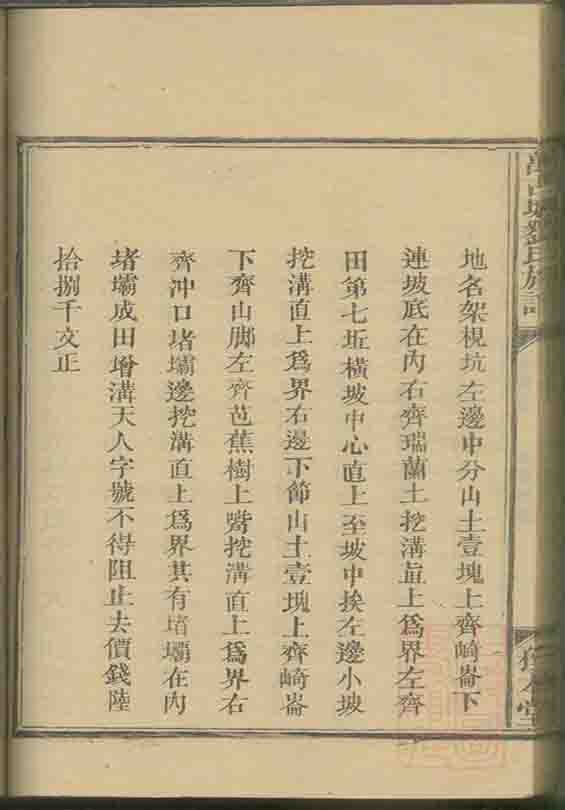 地名架梘坑左邊中分山土壹塊上齊崎崙下
連坡底在內右齊瑞蘭土挖溝直上爲界左齊
田第七坵橫坡中心直上至坡中挨左邊小坡
挖溝直上爲界右邊下節山土壹塊上齊崎崙
下齊山脚左齊芭蕉樹上嘴挖溝直上爲界右
齊冲口堵壩邊挖溝直上爲界其有堵壩在內
堵壩成田增溝天人字號不得阻止去價錢陸
拾捌千文正